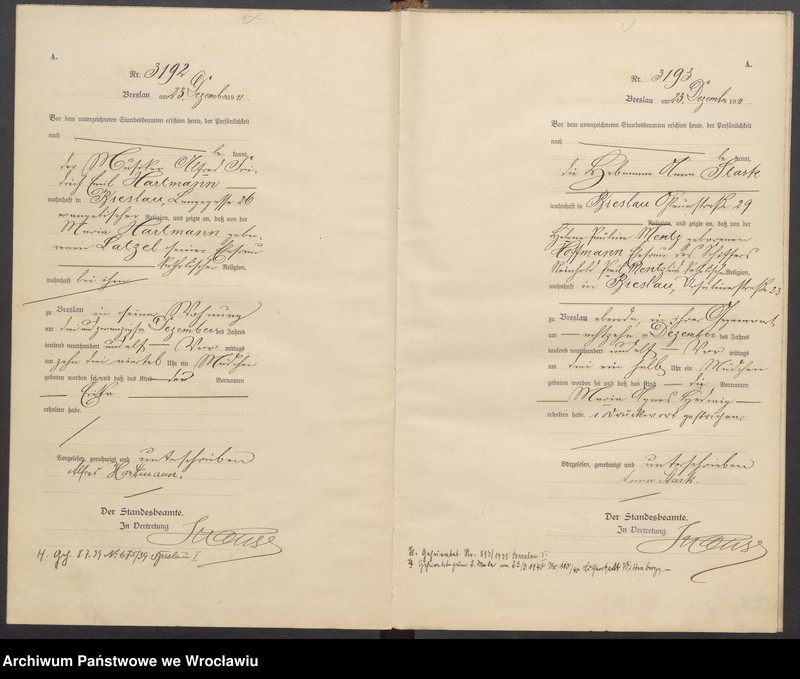 A.
Nr. 3192
Breslau am 23. Dezember 1911.
Vor dem unterzeichneten Standesbeamten erschien heute, der Persönlichkeit
nach
be kannt,
der Alfred Frie-
drich Emil Hartmann
wohnhaft in Breslau, Langegasse 26
evangelischer Religion, und zeigte an, daß von der
Maria Hartmann gebo-
renen Latzel seiner Ehefrau
katholischer Religion,
wohnhaft bei ihm
zu Breslau in seiner Wohnung
am dreiundzwanzigsten Dezember des Jahres
tausend neunhundert und elf Vor mittags
um zehn drei viertel Uhr ein Mädchen
geboren worden sei und daß das Kind den Vornamen
Erika
erhalten habe.
Vorgelesen, genehmigt und unterschrieben
Alfred Hartmann.
Der Standesbeamte.
In Vertretung
Krause
H. Gesch. 8.7.39 No 675/39 Breslau I
A.
Nr. 3193
Breslau am 23. Dezember 1911.
Vor dem unterzeichneten Standesbeamten erschien heute, der Persönlichkeit
nach
be kannt,
die Hebamme Anna Stark
wohnhaft in Breslau Ofenerstraße 29
Religion, und zeigte an, daß von der
Helene Pauline Mentz geborenen
Hoffmann Ehefrau des
Reinhold Mentz katholischer Religion,
wohnhaft in Breslau, Ursulinerstraße 23
zu Breslau ebenda, in ihrer Gegenwart
am achtzehn ten Dezember des Jahres
tausend neunhundert und elf Vor mittags
um drei ein halb Uhr ein Mädchen
geboren worden sei und daß das Kind die Vornamen
Maria Agnes Hedwig
erhalten habe. 1 Druckwort gestrichen.
Vorgelesen, genehmigt und unterschrieben
Anna Stark.
Der Standesbeamte.
In Vertretung
Krause
Geheiratet Nr. Breslau I.
Geheiratet zum 2. Male am Nr.
Archiwum Państwowe we Wrocławiu